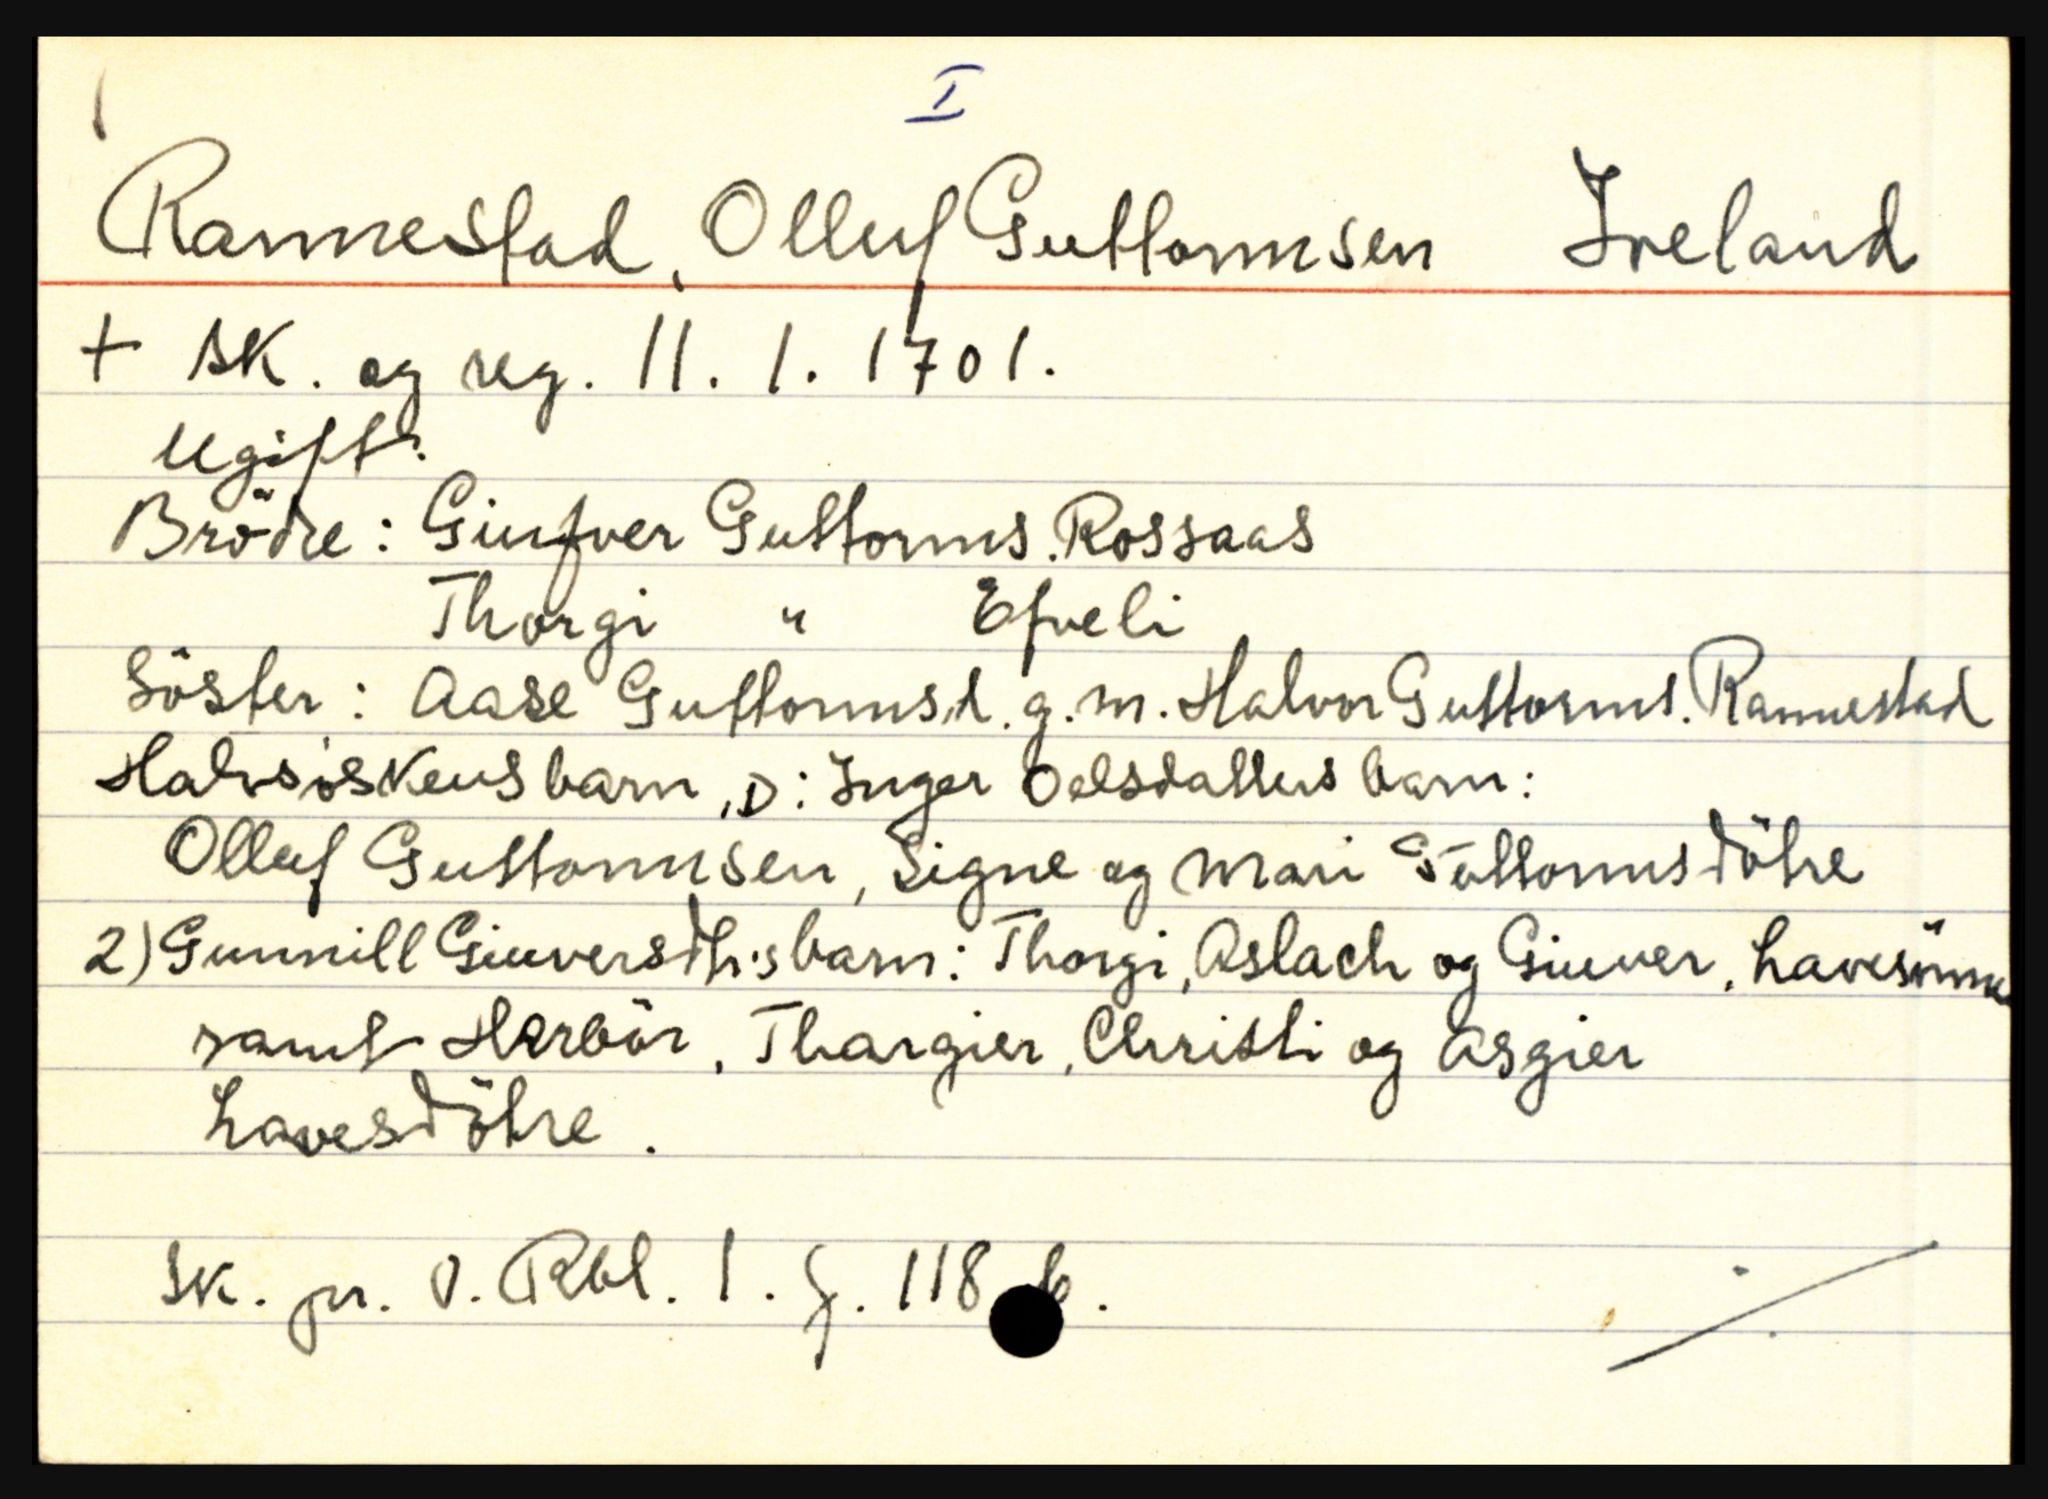 I
Rannestad, Olluf Guttormsen Iveland
+ sk. og reg. 11. 1. 1701.
Ugift.
Brödre: Giufver Guttorms. Rossaas
Thorgi " Efveli
Söster: Aase Guttormsd. g. m. Halvor Guttorms. Rannestad
Halvsöskens barn, ɔ: Inger Oelsdatters barn:
Olluf Guttormsen, Signe og Mari Guttormsdötre
2) Gunnill Giuversdtr's barn: Thorgi, Aslach og Giuver, Lavesönner
samt Herbör, Thargier, Christi og Asgier
Lavesdötre.
Sk. pr. O. Rbl. 1. f. 118 b.